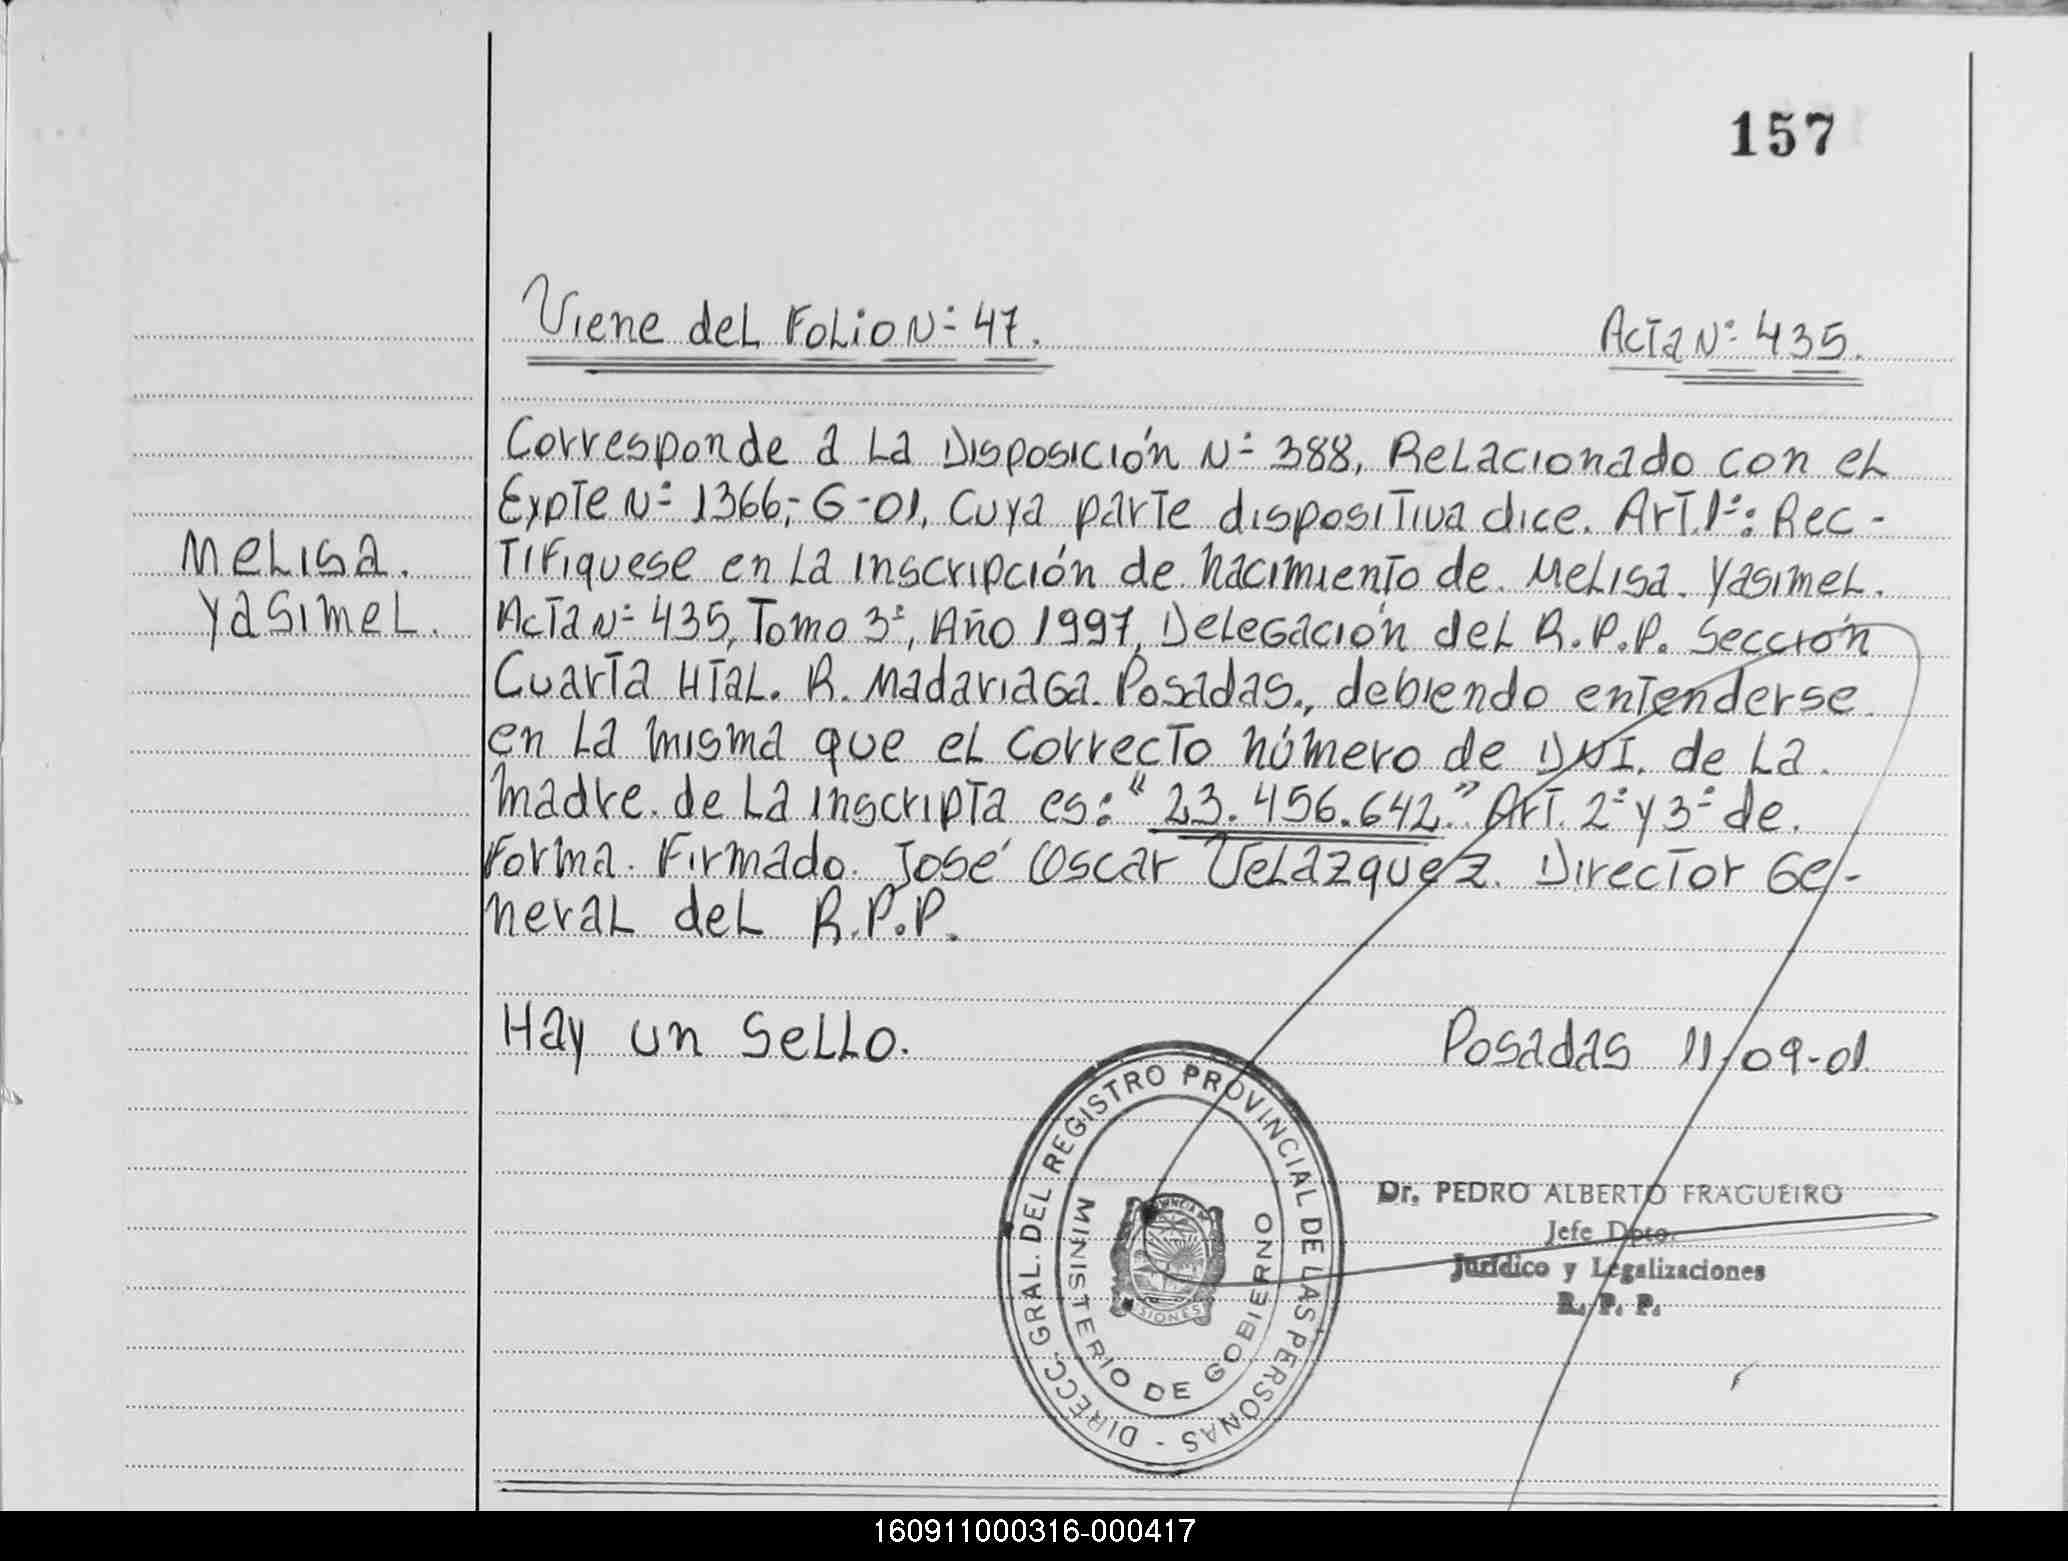 157
Viene del Folio N: 47. Acta N: 435.
Corresponde a la Disposición N: 388, Relacionado con el
Expte N: 1366,- G-01, Cuya parte dispositiva dice. Art. 1:: Rec-
Melisa. tifiquese en la inscripción de nacimiento de Melisa. Yasimel.
Yasimel. Acta N: 435, Tomo 3:, Año 1997, Delegación del R.P.P. Sección
Cuarta Htal. R. Madariaga. Posadas., debiendo entenderse
en la misma que el correcto número de DNI. de la.
madre. de la inscripta es: "23.456.642." Art. 2: y 3: de.
forma. Firmado. José Oscar Velázquez. Director Ge-
neral del R.P.P.
Hay un Sello. Posadas 11-09-01.
DIRECC. GRAL. DEL REGISTRO PROVINCIAL DE LAS PERSONAS -
MINISTERIO DE GOBIERNO
Dr. PEDRO ALBERTO FRAGUEIRO
Jefe Dpto.
Jurídico y Legalizaciones
R. P. P.
160911000316-000417